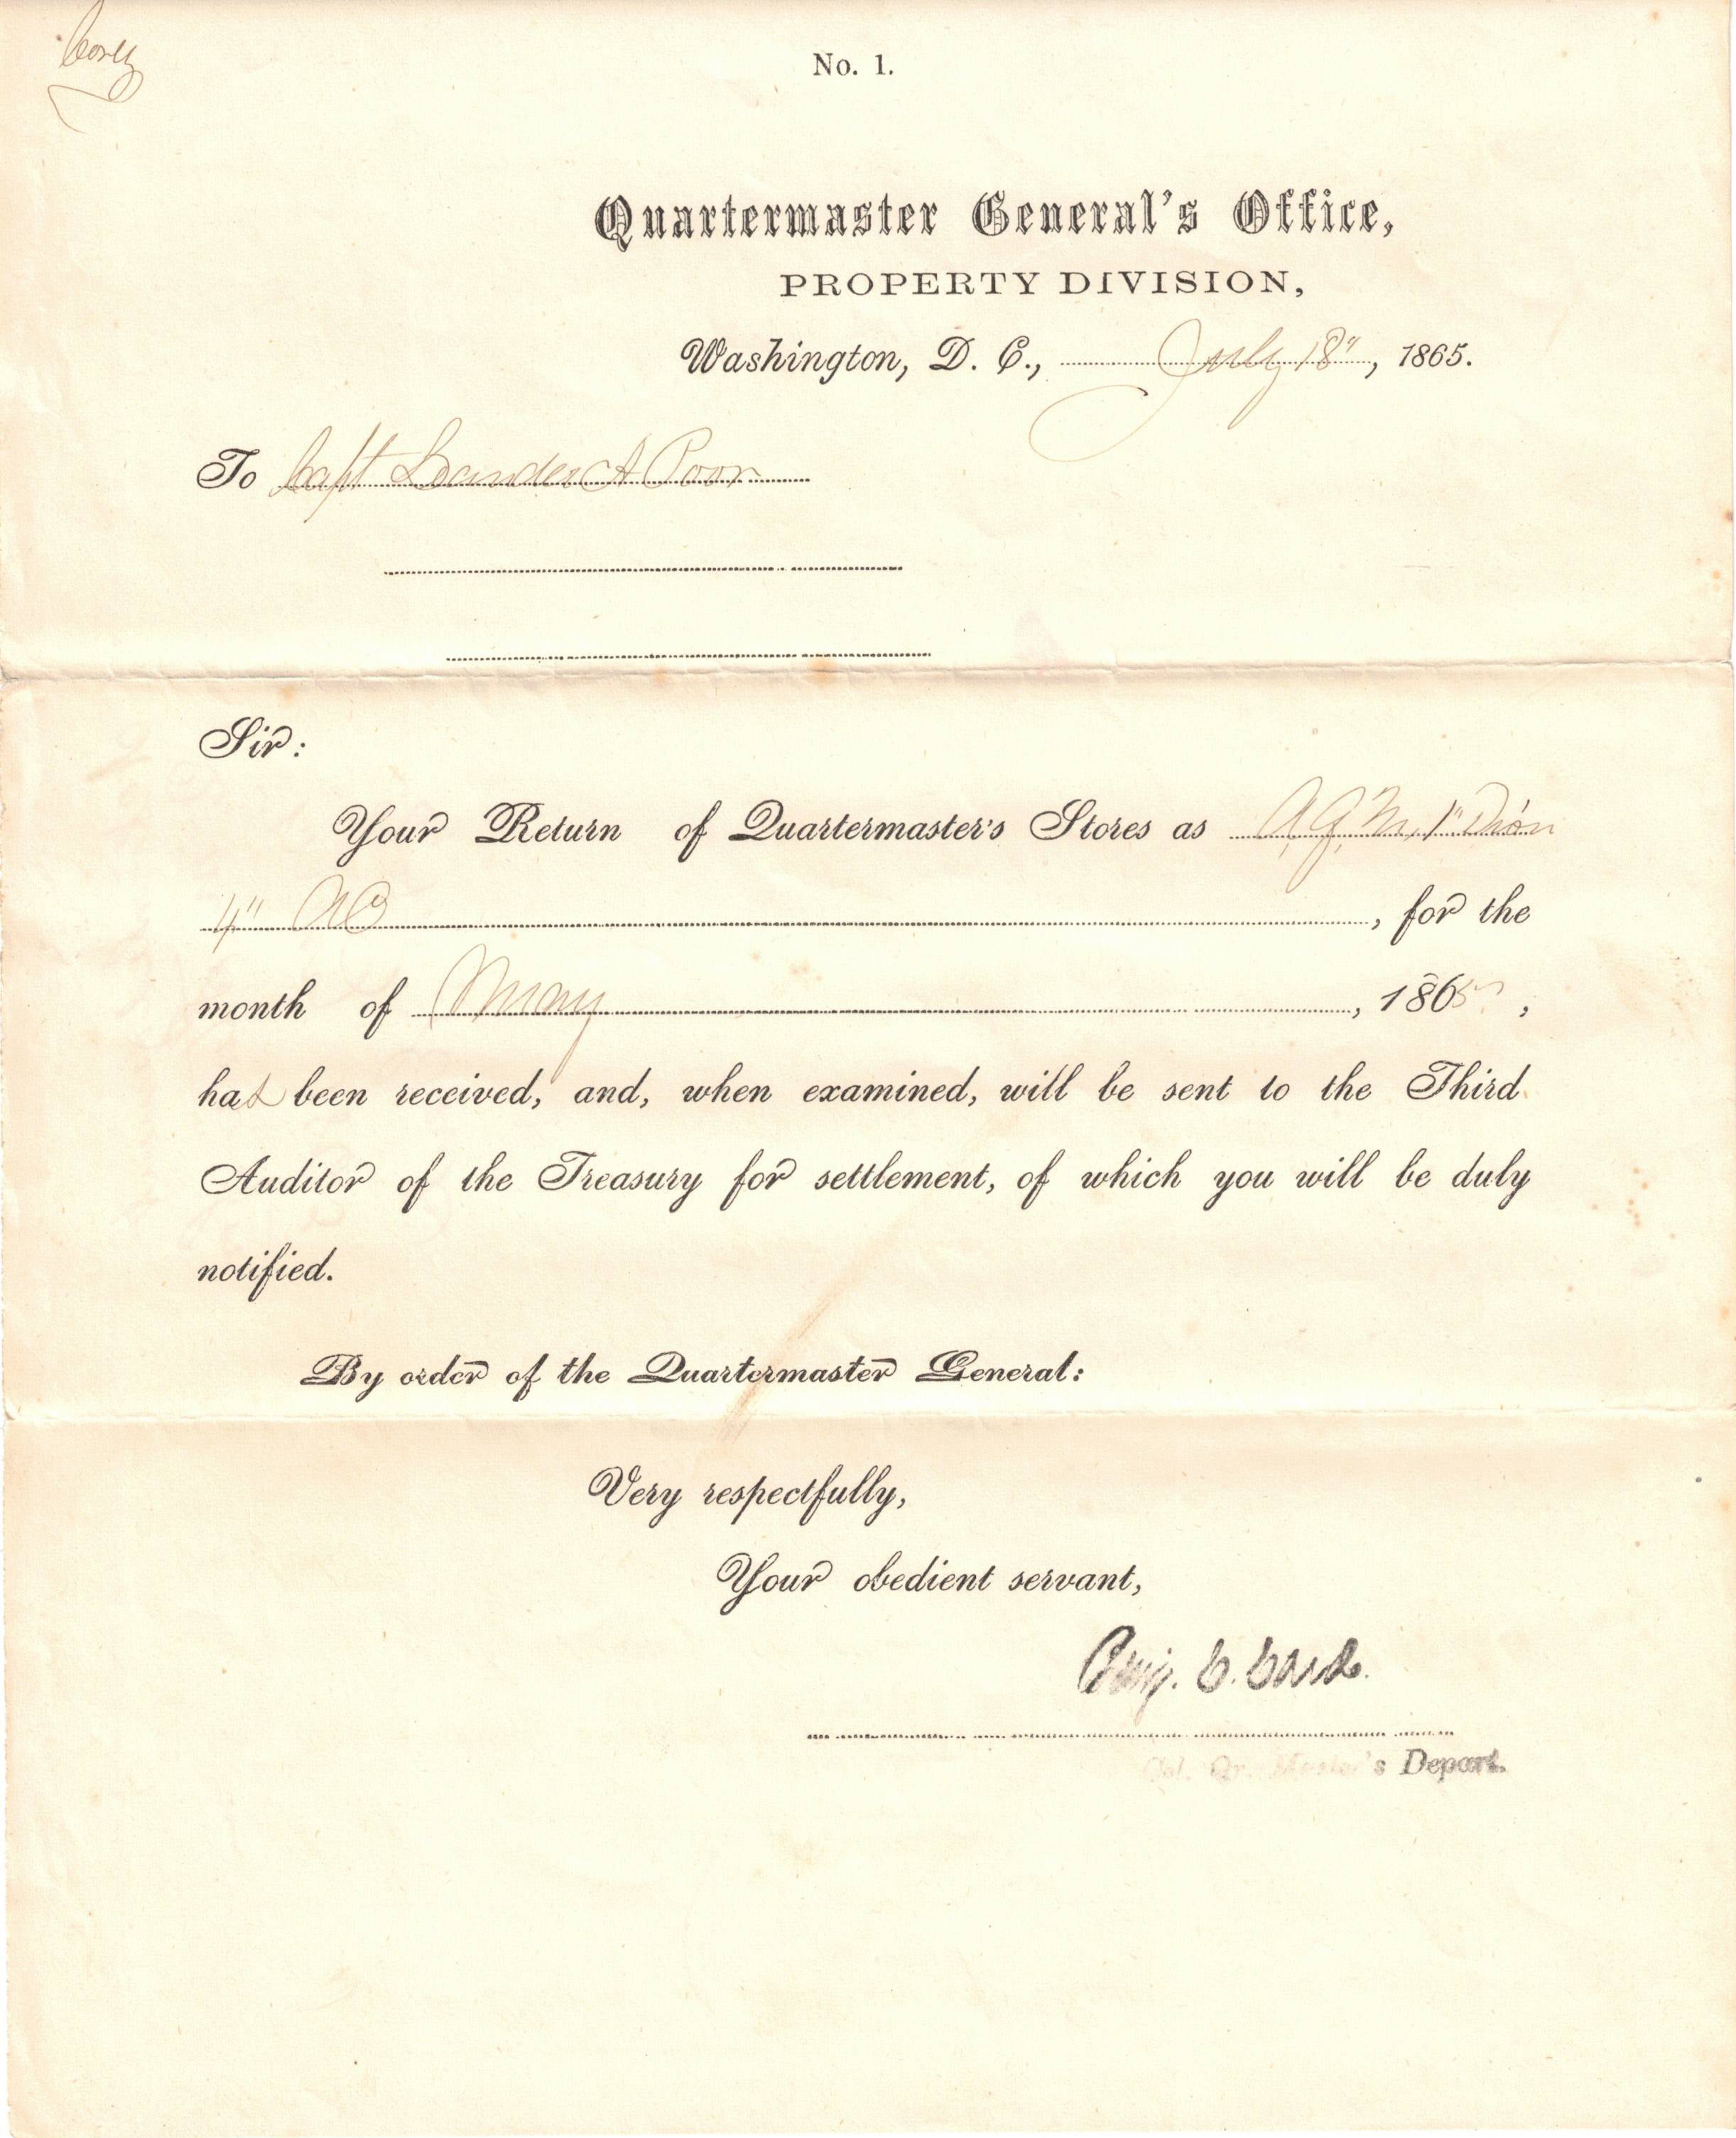 No. 1.
Quartermaster General's Office,
PROPERTY DIVISION,
Washington, D. C., July 18", 1865.
To Capt Leander A Poor
Sir:
Your Return of Quartermaster's Stores as A.Q.M. 1" Divn
4" AC, for the
month of May, 1865,
has been received, and, when examined, will be sent to the Third
Auditor of the Treasury for settlement, of which you will be duly
notified.
By order of the Quartermaster General:
Very respectfully,
Your obedient servant,
Benj. C. Card.
Col. Qr. Master's Depart.